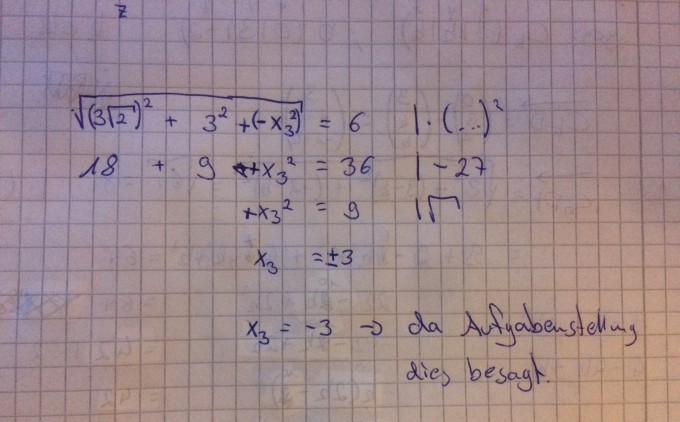 z
√((3√2)² + 3² + (-x₃²)) = 6 | · (...)²
18 + 9 + x₃² = 36 | - 27
+x₃² = 9 | √
x₃ = ±3
x₃ = -3 → da Aufgabenstellung
dies besagt.